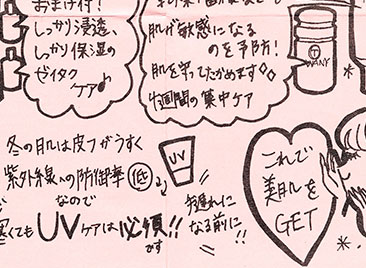 おまけ付!
しっかり浸透、
しっかり保湿の
ゼイタク
ケア♪
肌が敏感になる
のを予防!
肌を守ってたかめます◇◇
4週間の集中ケア
WANY
冬の肌は皮フがうすく
紫外線への防御率 低
なので
寒くてもUVケアは必須!!
です
UV
手遅れに
なる前に!!
これで
美肌を
GET